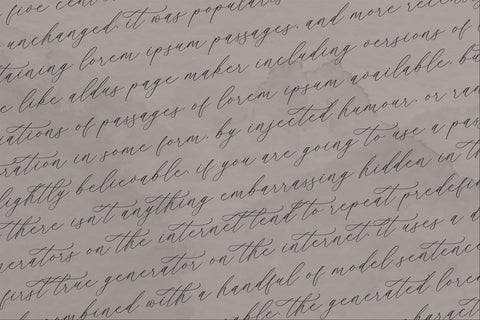 five cent
unchanged. it was popularis
taining lorem ipsum passages, and more recen
e like aldus page maker including versions of l
iations of passages of lorem ipsum available, bu
ration in some form, by injected humour, or ran
lightly believable. if you are going to use a pas
there isn't anything embarrassing hidden in th
nerators on the internet tend to repeat predefin
first true generator on the internet. it uses a d
combined with a handful of model sentence
able. the generated lorem
charact